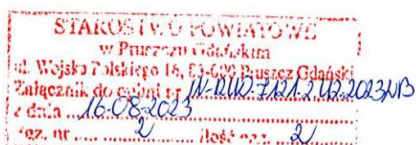 STAROSTWO POWIATOWE
w Pruszczu Gdańskim
ul. Wojska Polskiego 16, 83-000 Pruszcz Gdański
Załącznik do opinii nr
z dnia 16-08-2023
egz. nr 2 ilość egz. 2